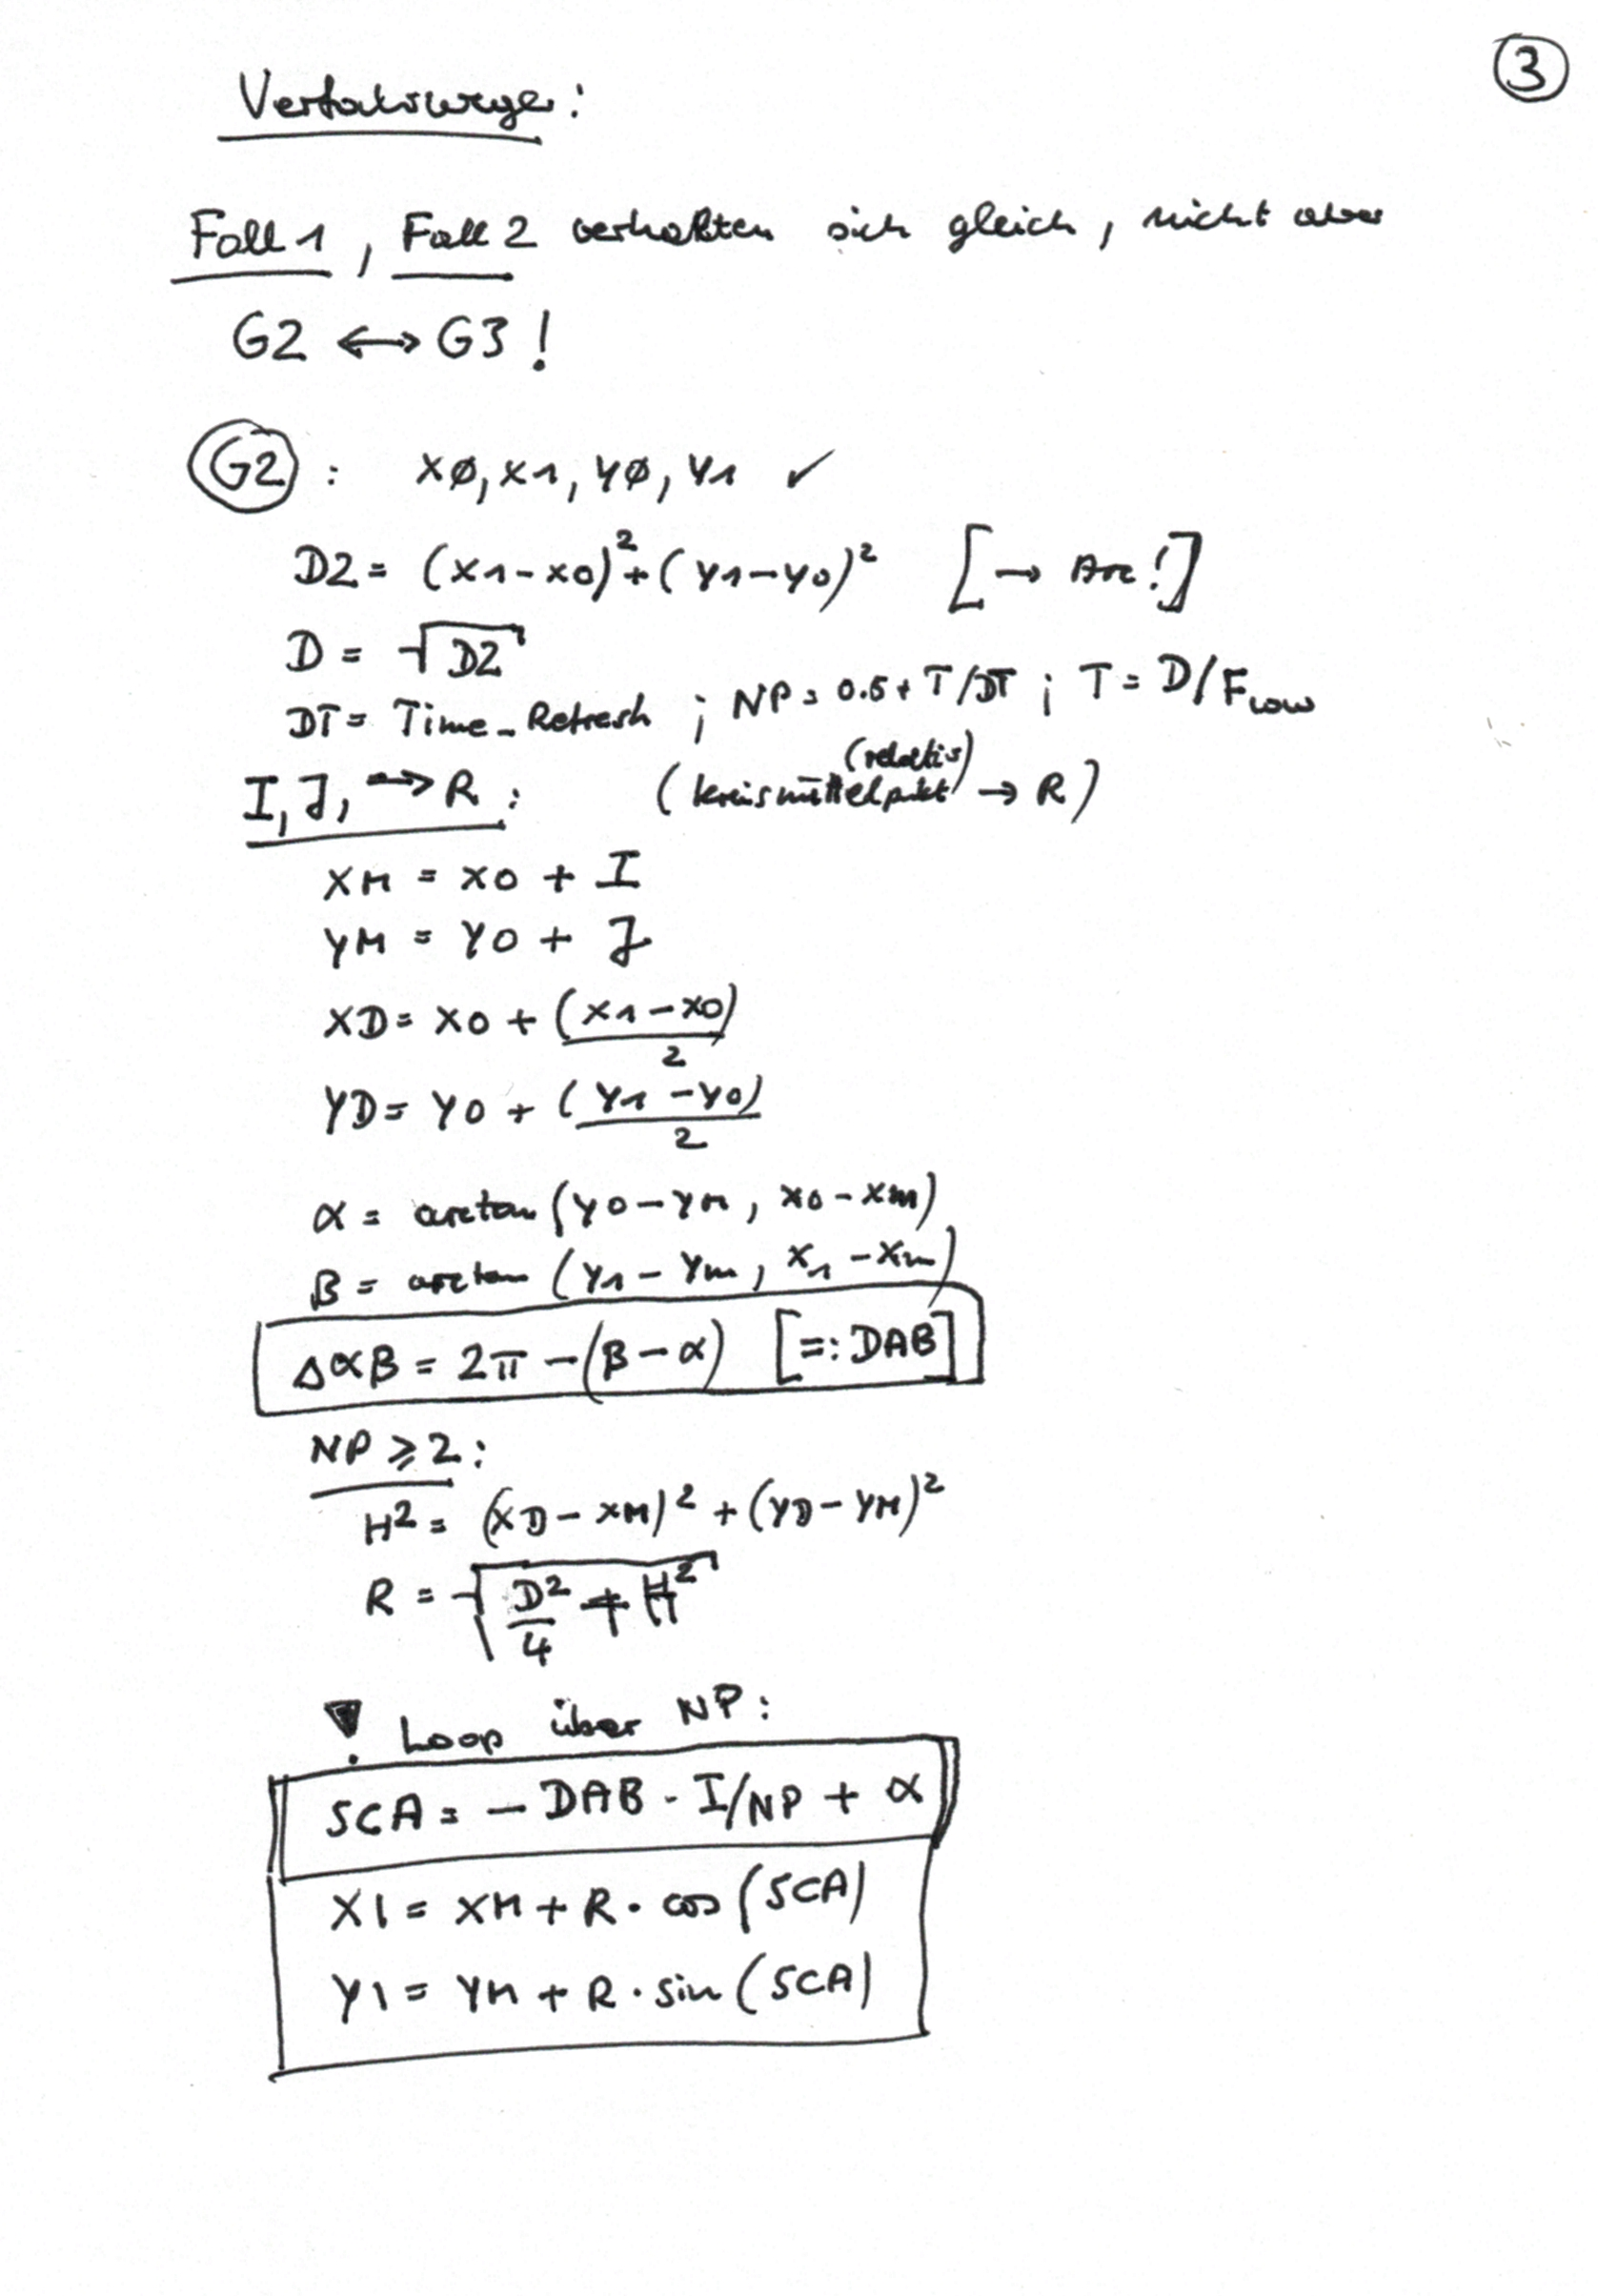 3
Verfahrwege:
Fall 1, Fall 2 verhalten sich gleich, nicht aber
G2 ↔ G3!
G2 : XØ, X1, YØ, Y1 ✓
D2 = (X1-X0)² + (Y1-Y0)² [→ Arc!]
D = √D2
DT = Time_Refresh ; NP = 0.5 + T/DT ; T = D/F_low
I, J, → R : (Kreismittelpukt (relativ) → R)
XM = X0 + I
YM = Y0 + J
XD = X0 + (X1-X0)/2
YD = Y0 + (Y1-Y0)/2
α = arctan (Y0-YM, X0-XM)
β = arctan (Y1-Ym, X1-Xm)
ΔαΒ = 2π - (β-α) [=: DAB]
NP ≥ 2:
H² = (XD-XM)² + (YD-YM)²
R = √(D²/4 + H²)
! Loop über NP:
SCA = - DAB · I/NP + α
XI = XM + R · cos (SCA)
YI = YM + R · sin (SCA)